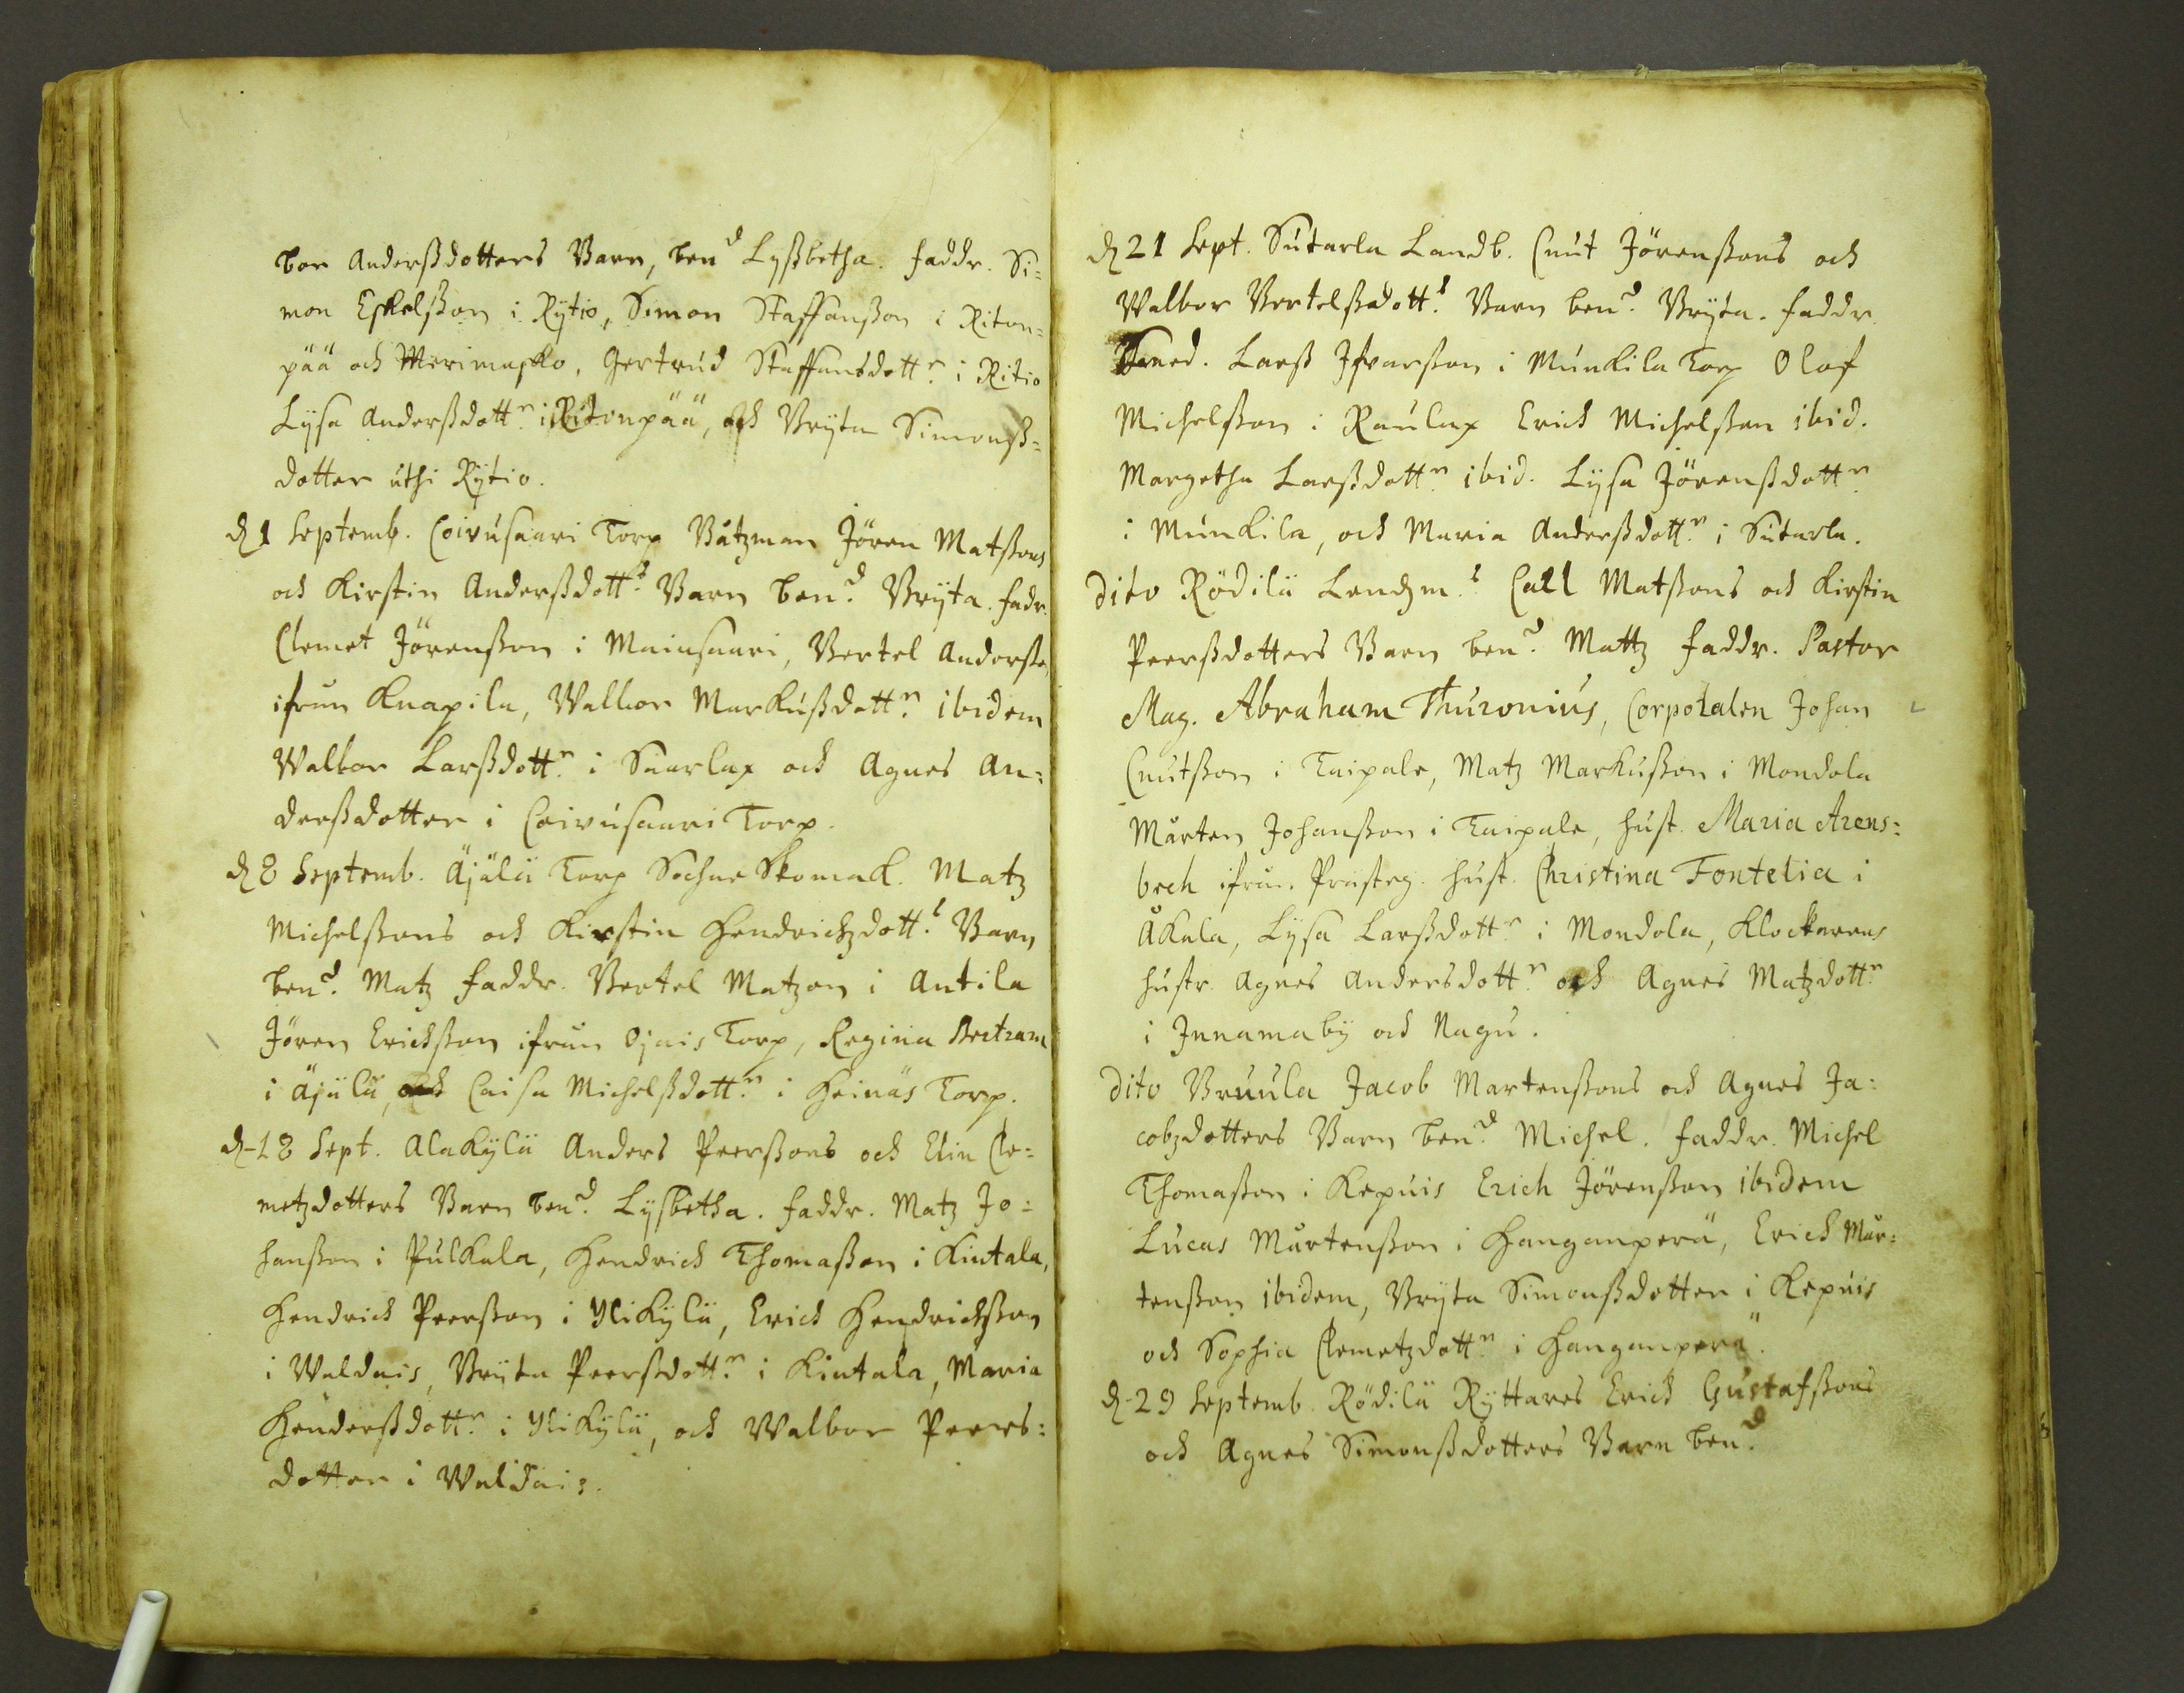 bor Anderßdotters Barn, ben.d Lyßbetha. faddr. Si=
mon Eskelßon i Rÿtio, Simon Staffanßon i Riton=
pää och Merimasko, Gertrud Staffansdott.r i Ritio
Lysa Anderßdott.r i Ritonpää, och Brÿta Simonß=
dotter uthi Rÿtio.
d 1 Septemb. Coivusaari Torp Båtzman Jören Matßons
och Kirstin Anderßdott.s Barn ben.d Brÿta. fadr.
Clemet Jörenßon i Mainsaari, Bertel Anderße
ifrån Knapila, Walbor Markußdott.r ibidem
Walbor Larßdott.r i Saarlax och Agnes An=
derßdotter i Coivusaari Torp.
d 8 Septemb. Äjälä Torp Sochne Skomak. Matz
Michelßons och Kirstin Hendrichzdott.s Barn
ben.d Matz faddr. Bertel Matzon i Antila
Jören Erichßon ifrån Ojais Torp, Regina Bertram
i Äjälä, och Caisa Michelßdott.r i Heinäs Torp.
d 18 Sept. Alakÿlä Anders Peerßons och Elin Cle=
metzdotters Barn ben.d Lÿsbetha. faddr. Matz Jo=
hanßon i Pulkala, Hendrich Thomaßon i Kintala,
Hendrich Peerßon i Ylikÿlä, Erich Hendrichßon
i Waldais, Brÿta Peerßdott.r i Kintala, Maria
Henderßdott.r i Ylikÿlä, och Walbor Peers=
dotter i Waldais.
d 21 Sept. Sutarla Landb. Cnut Jörenßons och
Walbor Bertelßdott.s Barn ben.d Brÿta. faddr.
Smed. Larß Ifvarßon i Munkila Torp Olof
Michelßon i Raulax Erich Michelßon ibid.
Margetha Larßdott.r ibid. Lÿsa Jörenßdott.r
i Munkila, och Maria Anderßdott.r i Sutarla.
dito Rödilä Lendzm.s Call Matßons och Kirstin
Peerßdotters Barn ben.d Mattz faddr. Pastor
Mag. Abraham Thuronius, Corporalen Johan
Cnutßon i Taipale, Matz Markußon i Mondola
Mårten Johanßon i Taipale, hust. Maria Arens=
bech ifrån Prästeg. hust. Christina Fontelia i
Åkala, Lÿsa Larßdott.r i Mondola, Klockarens
hustr. Agnes Andersdott.r och Agnes Matzdott.r
i Innamabÿ och Nagu.
dito Bruula Jacob Martenßons och Agnes Ja=
cobzdotters Barn ben.d Michel. faddr. Michel
Thomaßon i Kepuis Erich Jörenßon ibidem
Lucas Mårtenßon i Hanganperä, Erich Mår=
tenßon ibidem, Brÿta Simonßdotter i Kepuis
och Sophia Clemetzdott.r i Hanganperä.
d 29 Septemb. Rödilä Rÿttares Erich Gustafßons
och Agnes Simonßdotters Barn ben.d